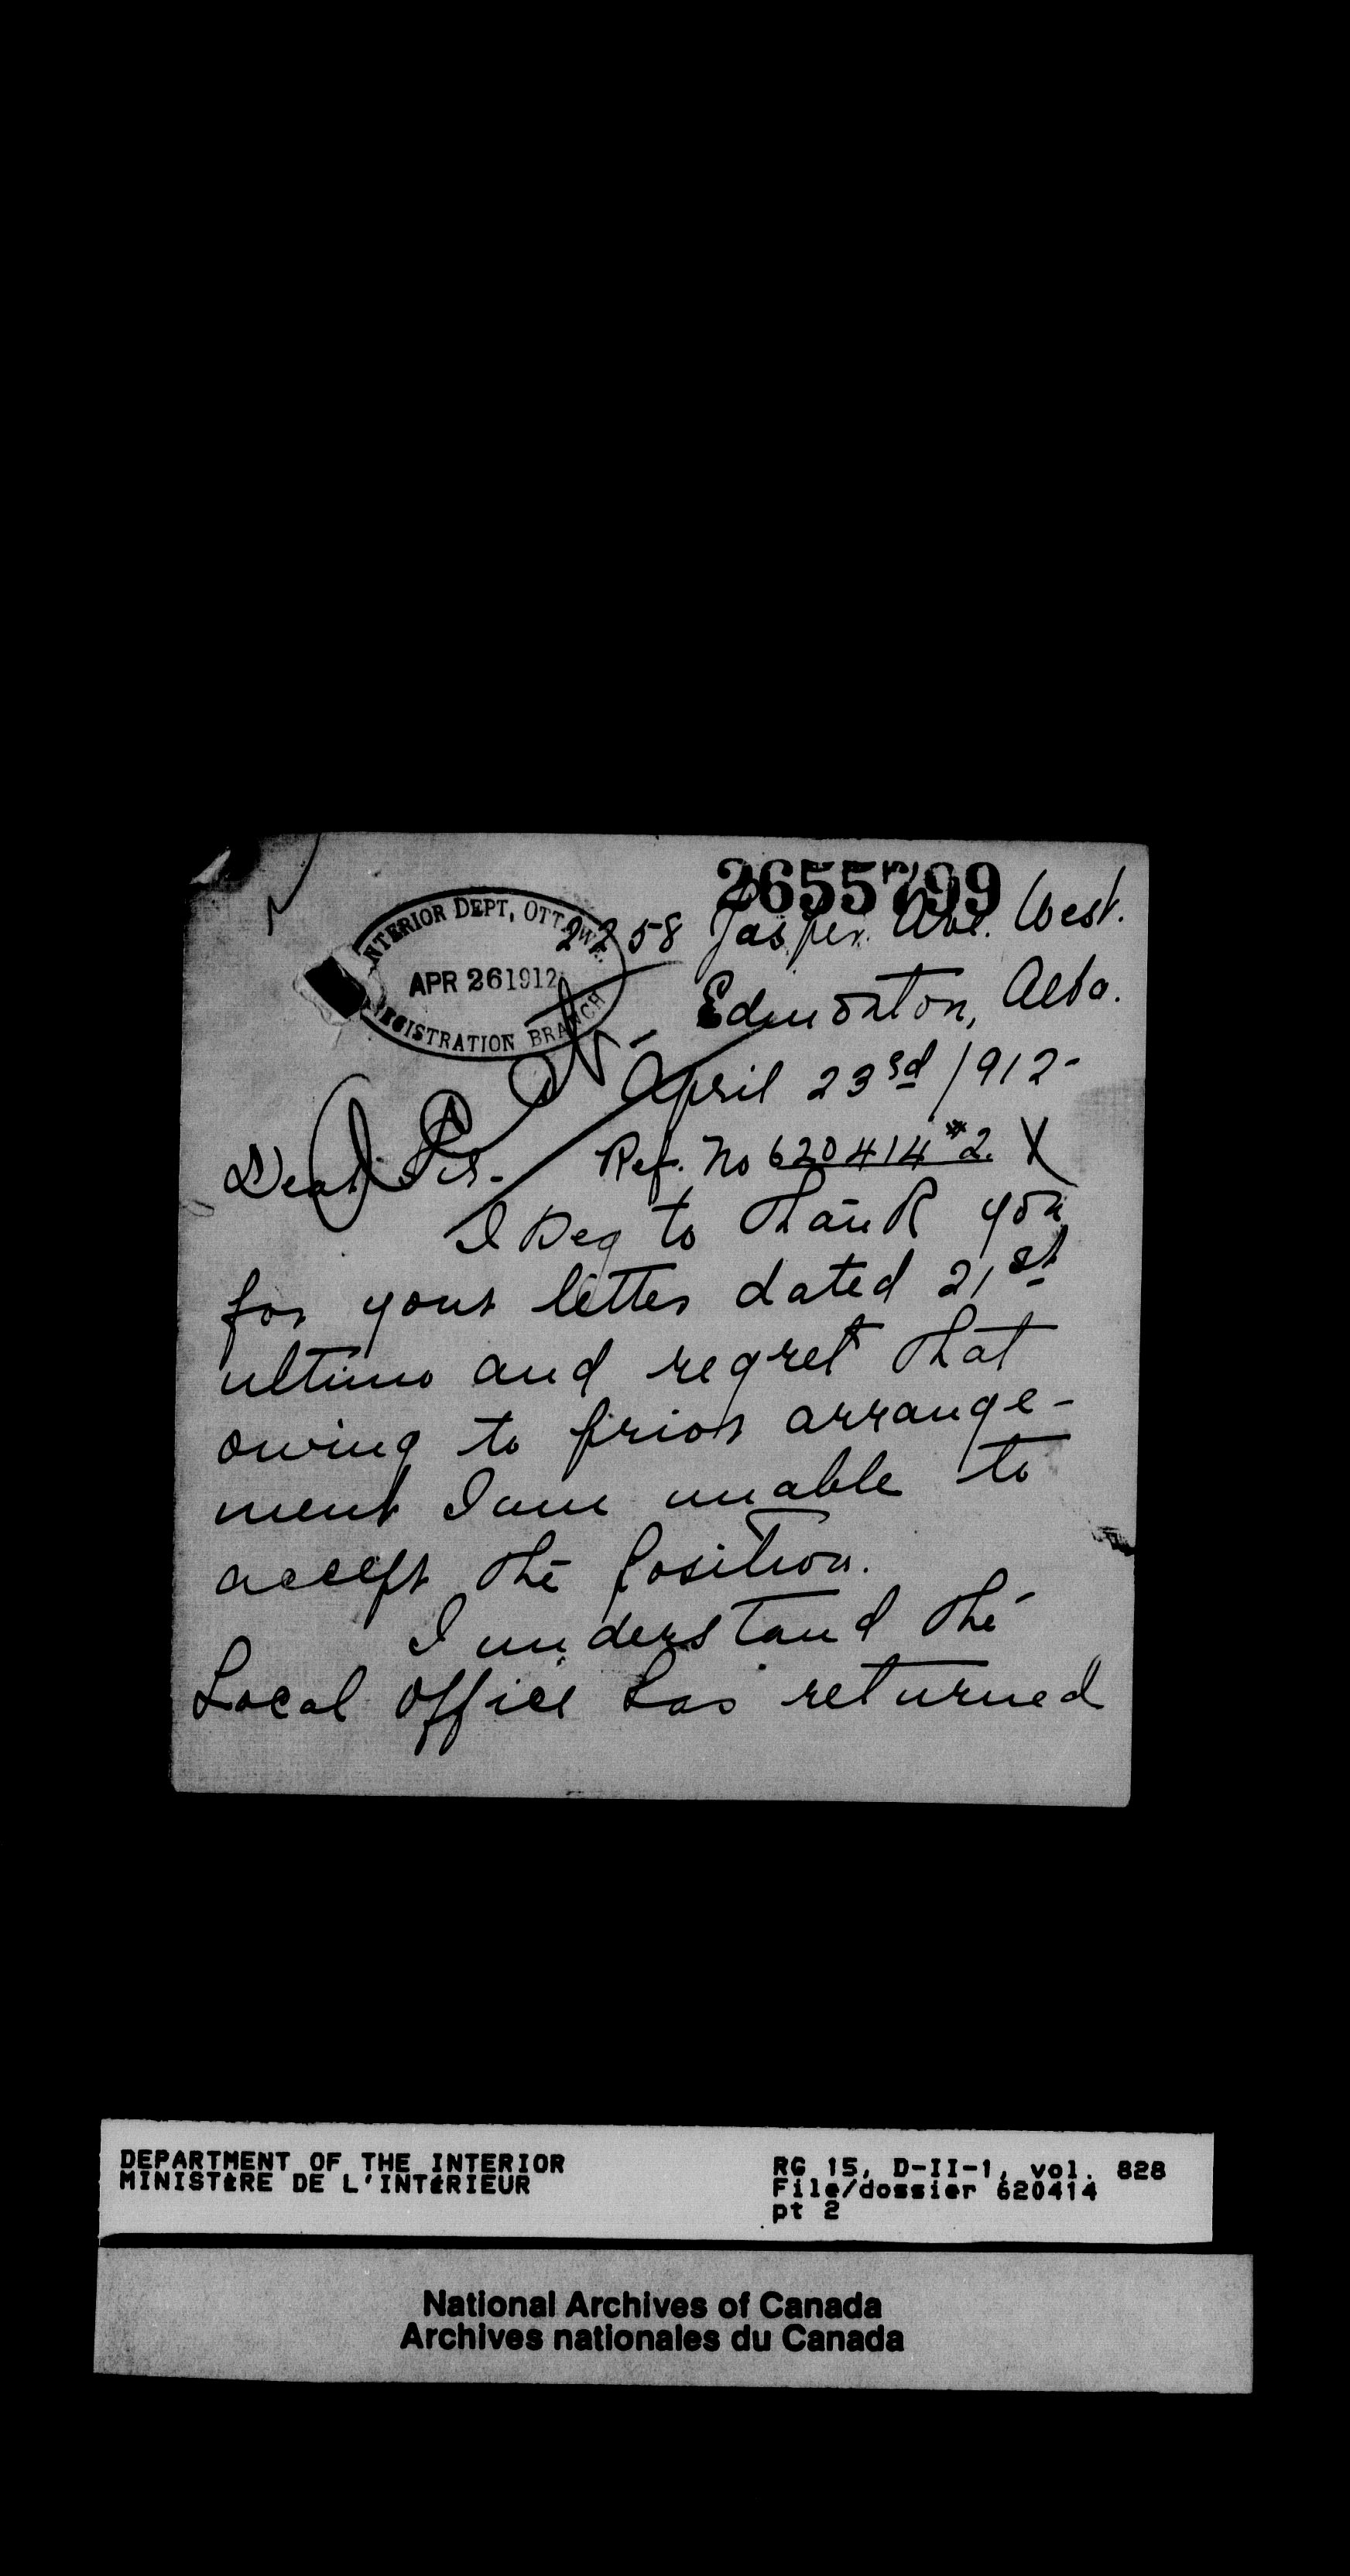 2655799
INTERIOR DEPT, OTTAWA.
APR 26 1912
REGISTRATION BRANCH
2258 Jasper Ave. West.
Edmonton, Alba.
April 23rd/912-
Dear Sir. Ref. No 620414 #2. X
I beg to thank you
for your letter dated 21st
ultimo and regret that
owing to prior arrange-
ment I am unable to
accept the position.
I understand the
Local Office has returned
DEPARTMENT OF THE INTERIOR
MINISTÈRE DE L'INTÉRIEUR
RG 15, D-II-1, vol. 828
File/dossier 620414
pt 2
National Archives of Canada
Archives nationales du Canada